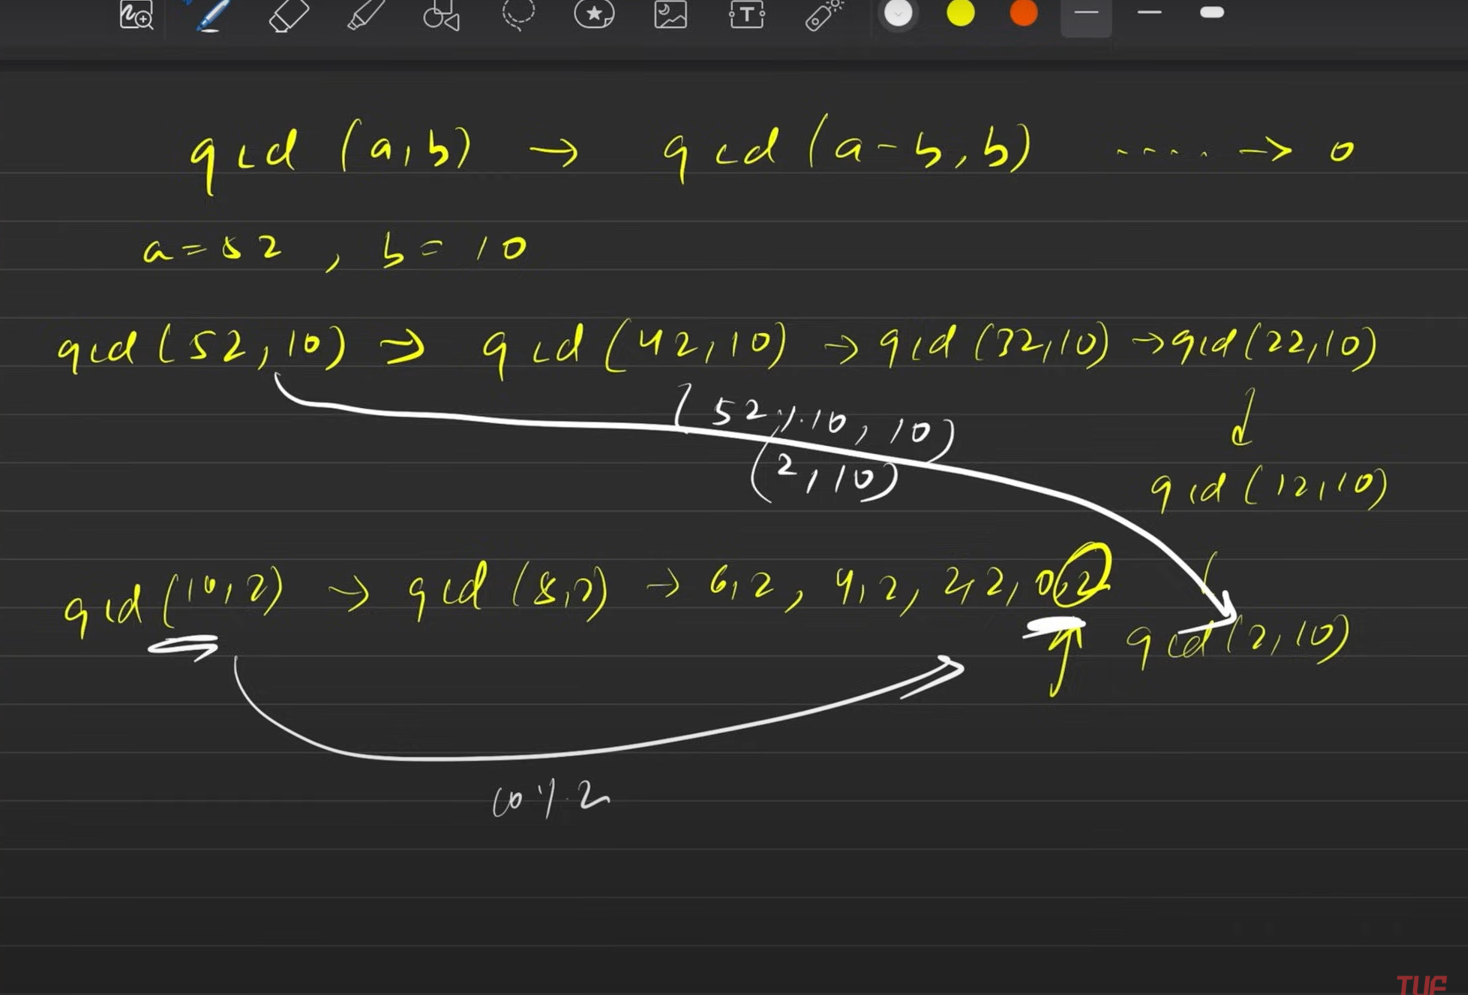 gcd (a,b) → gcd (a-b, b) ..... → 0
a=52 , b= 10
gcd (52,10) → gcd (42,10) → gcd (32,10) → gcd (22,10)
(52%10, 10)
(2,10)
gcd (12,10)
gcd (10,2) → gcd (8,2) → 6,2 , 4,2, 2,2, 0,2
gcd (2,10)
10%2
TUF